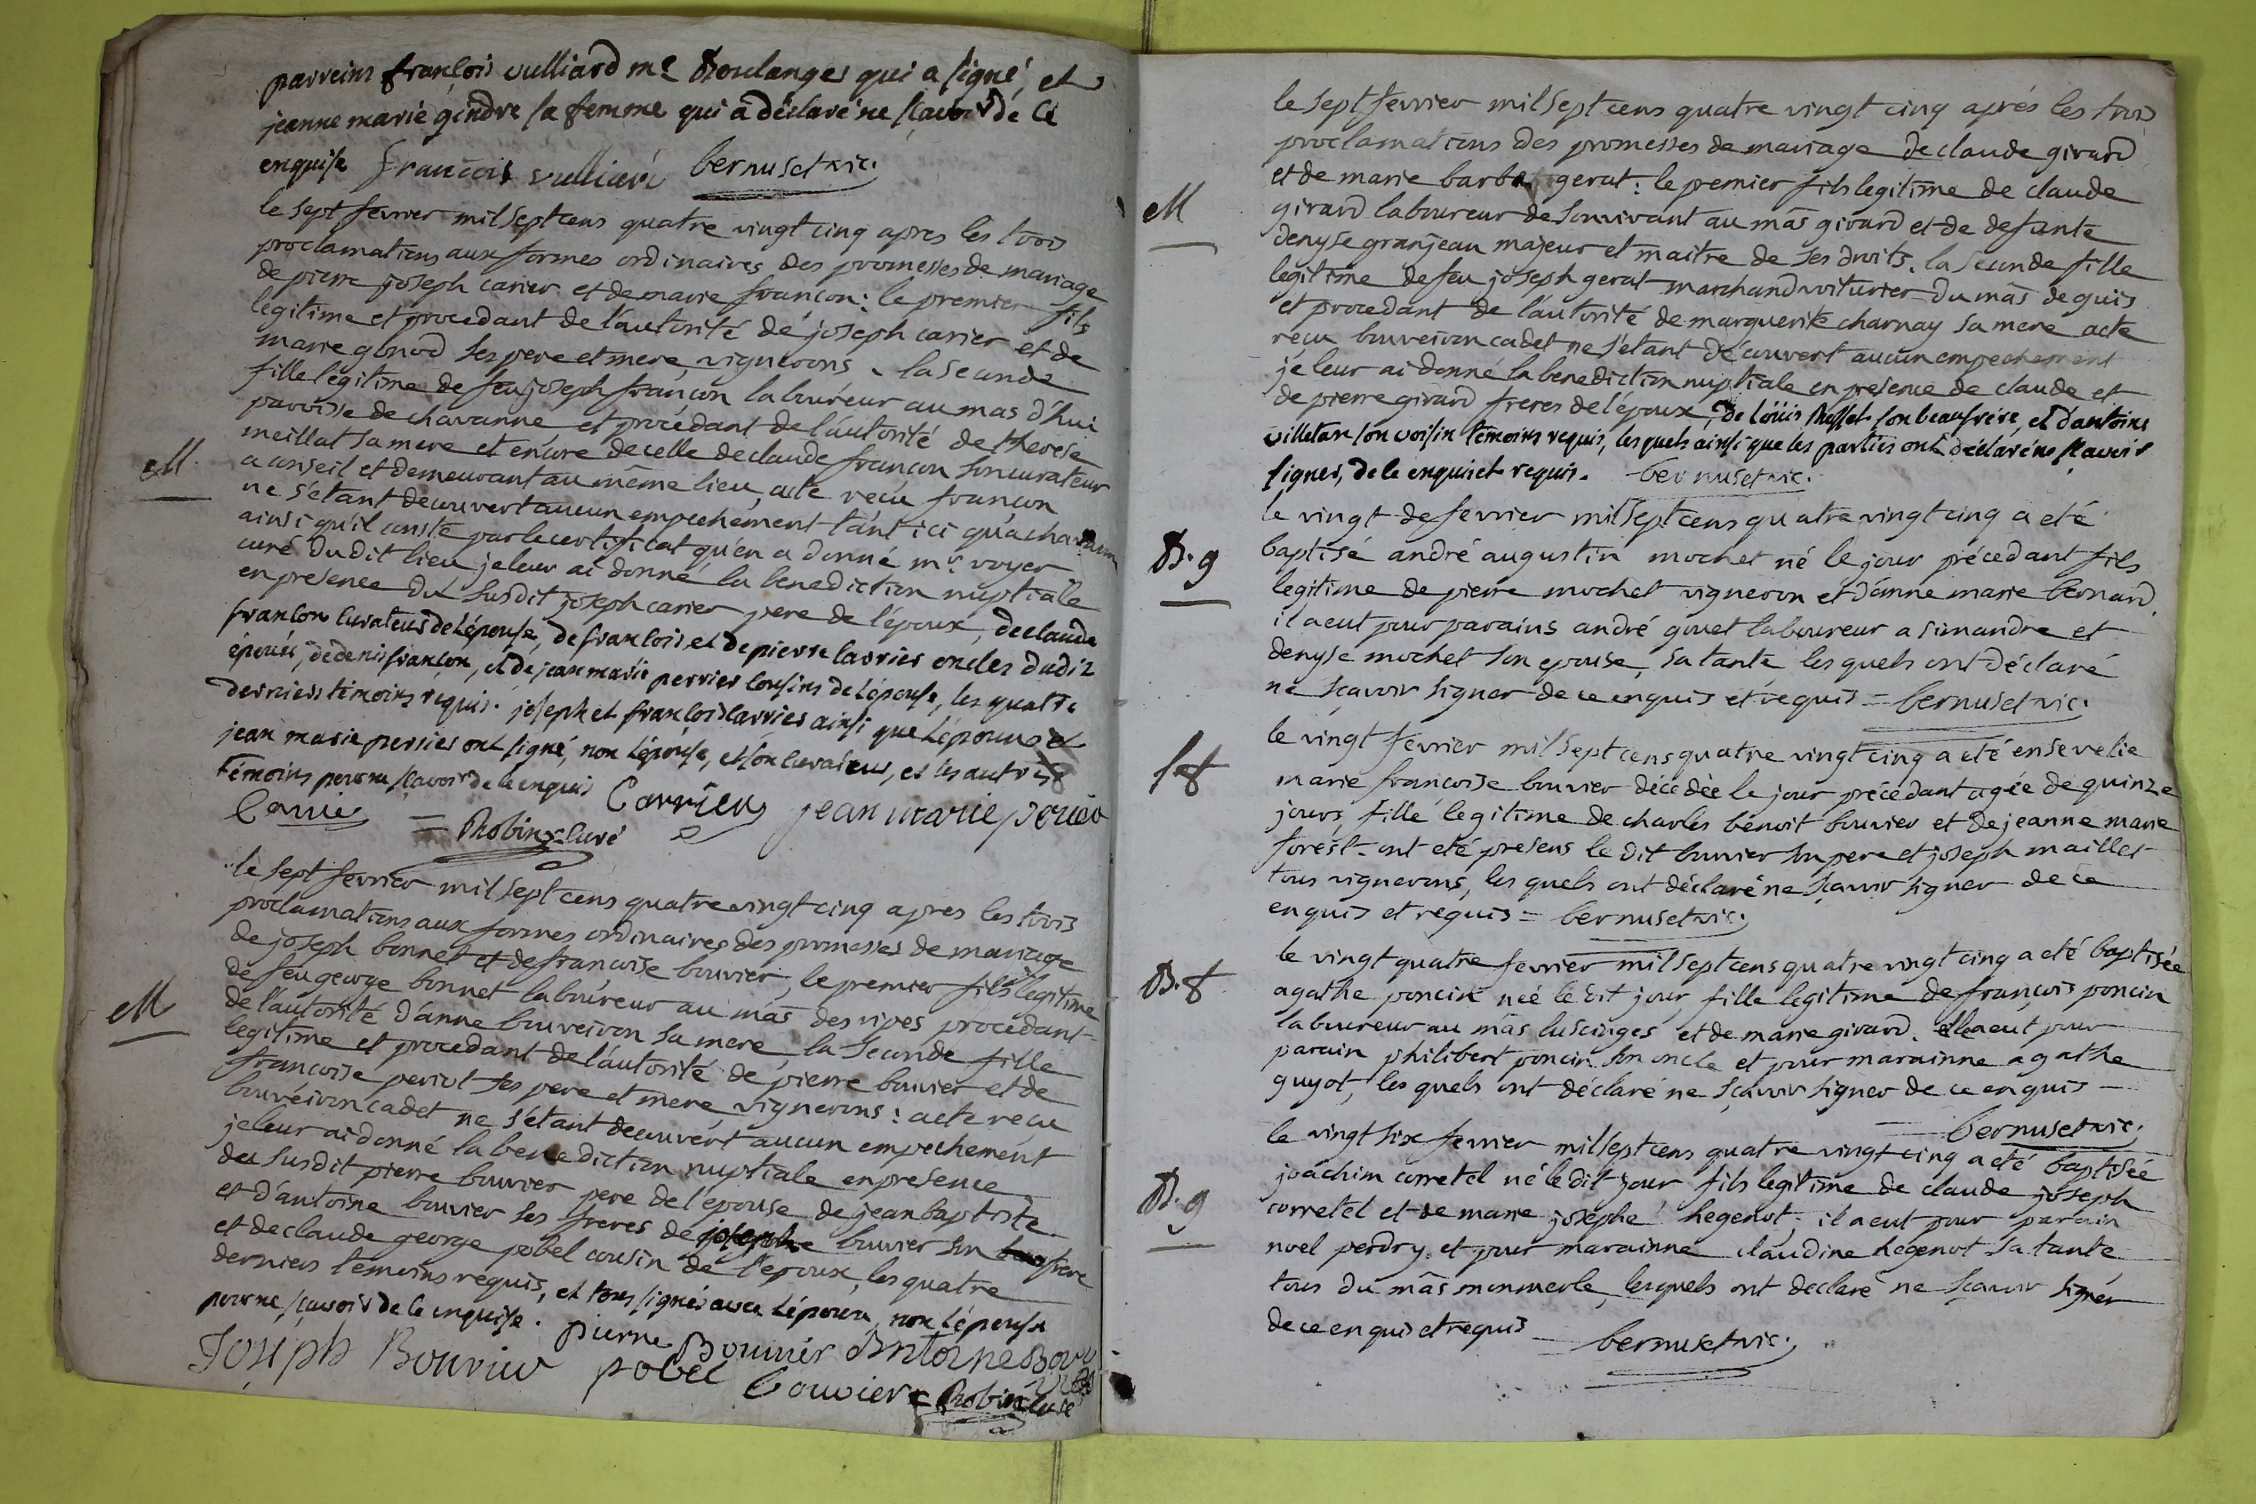 parreins françois vulliard me Boulanger qui a signé, et
jeanne marie gindre sa femme qui a déclaré ne sçavoir de ce
enquise françois vulliard bernuset vic.
le sept fevrier mil sept cens quatre vingt cinq apres les trois
proclamations aux formes ordinaires des promesses de mariage
de pierre joseph carier et de marie françon: le premier fils
legitime et procedant de l'autorité de joseph carier et de
marie gonod ses pere et mere vignerons. la seconde
fille légitime de feu joseph françon laboureur au mas d'hui
parroisse de chavanne et procédant de l'autorité de therese
meillat sa mere et encore de celle de claude françon son curateur
M
a conseil et demeurant au même lieu, acte reçu françon
ne s'étant decouvert aucun empechement tant ici qu'a chavanne
ainsi qu'il conste par le certificat qu'en a donné mr. voyer
curé du dit lieu je leur ai donné la benediction nuptialle
en presence du susdit joseph carier pere de l'époux, de claude
françon curateur de l'épouse, de françois et de pierre carrier oncles dudit
épouxs, de denis françon, et de jean marie perrier cousins de l'épouse, les quatre
derniers témoins requis. joseph et françois carrier ainsi que l'époux et
jean marie perrier ont signé, non l'épouse, et son curateur, et les autres
témoins pour ne sçavoir de ce enquis Carrier jean marie perier
Carrier = Robin curé
le sept fevrier mil sept cens quatre vingt cinq apres les trois
proclamations aux formes ordinaires des promesses de mariage
de joseph bonnet et de françoise bouvier, le premier fils legitime
de feu george bonnet laboureur au mas des ripes procedant
M
de l'autorité d'anne bouveiron sa mere la seconde fille
legitime et procedant de l'autorité de pierre bouvier et de
françoise periot ses pere et mere, vignerons: acte reçu
bouvéiron cadet ne s'étant decouvert aucun empechement
je leur ai donné la benediction nuptiale en presence
du susdit pierre bouvier pere de l'épouse de jean baptiste
et d'antoine bouvier ses freres de joseph bouvier son frere
et de claude george pobel cousin de l'époux, les quatre
derniers témoins requis, et tous signés avec l'époux, non l'épouse
pour ne sçavoir de ce enquise. pierre Bouvier Antoine Bouvier
Joseph Bouvier pobel Bouvier = Robin curé
le sept fevrier mil sept cens quatre vingt cinq aprés les trois
proclamations des promesses de mariage de claude girard
et de marie barbe gerat: le premier fils legitime de claude
M
girard laboureur de son vivant au mas girard et de defunte
denyse granjean majeur et maitre de ses droits. la seconde fille
legitime de feu joseph gerat marchand voiturier du mas de guis
et procedant de l'autorité de marguerite charnay sa mere acte
reçu bouveiron cadet ne s'etant découvert aucun empechement
je leur ai donné la benediction nuptiale en presence de claude et
de pierre girard freres de l'époux, de Loüis Buffet son beaufrère, et d'antoine
villetan son voisin témoins requis, lesquels ainsi que les parties ont déclaré ne sçavoir
signer, de ce enquis et requis. bernuset vic.
le vingt de fevrier mil sept cens quatre vingt cinq a eté
B. g
baptisé andré augustin mochet né le jour précedant fils
legitime de pierre mochet vigneron et d'anne marie bernard.
il a eut pour parains andré gouet laboureur a simandre et
denyse mochet son epouse, sa tante les quels ont déclaré
ne sçavoir signer de ce enquis et requis = bernuset vic.
le vingt fevrier mil sept cens quatre vingt cinq a eté ensevelie
S f
marie françoise bouvier décedée le jour précedant agée de quinze
jours, fille legitime de charles benoit bouvier et de jeanne marie
forést. ont eté presens le dit bouvier son pere et joseph maillet
tous vignerons, les quels ont déclaré ne sçavoir signer de ce
enquis et requis = bernuset vic.
le vingt quatre fevrier mil sept cens quatre vingt cinq a eté baptisée
B. f
agathe poncin née le dit jour, fille legitime de françois poncin
laboureur au mas luscinges et de marie girard. elle a eut pour
parain philibert poncin son oncle et pour marainne agathe
guyot, les quels ont déclaré ne sçavoir signer de ce enquis
bernuset vic.
le vingt six fevrier mil sept cens quatre vingt cinq a eté baptisée
B. g
joachim corretel né le dit jour fils legitime de claude joseph
corretel et de marie josephe hegenot; il a eut pour parain
noel perdry et pour marainne claudine hegenot sa tante
tous du mas monmerle, lesquels ont declaré ne sçavoir signér
de ce enquis et requis = bernuset vic.